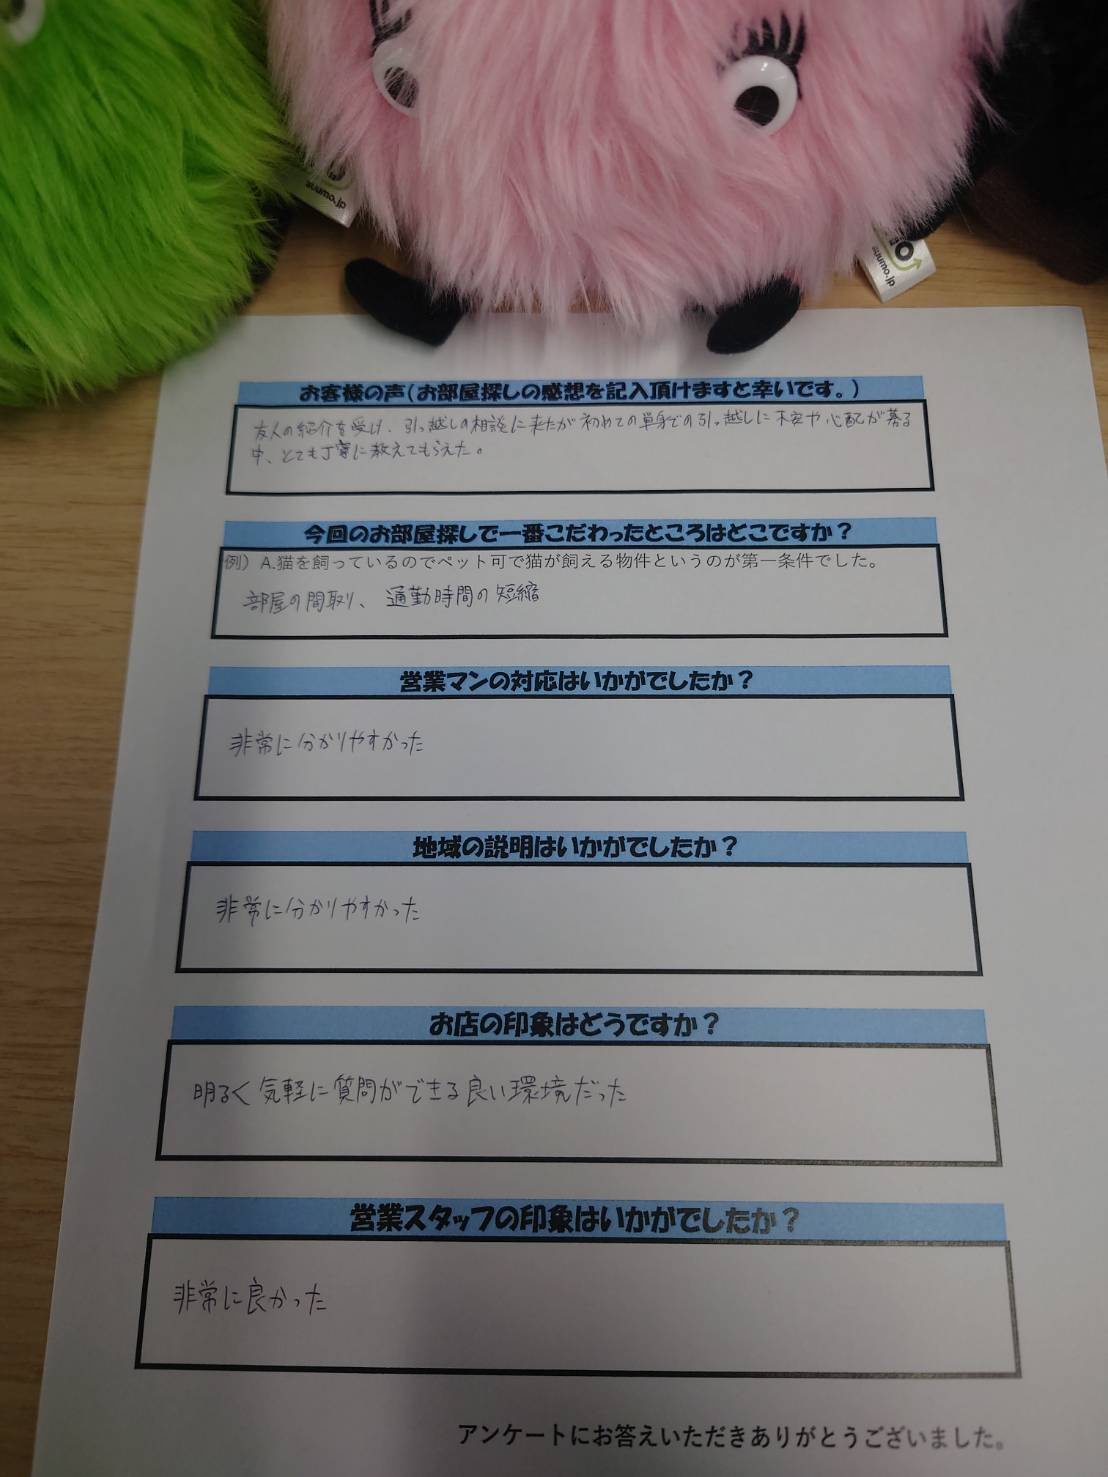 suumo.jp
suumo.jp
お客様の声(お部屋探しの感想を記入頂けますと幸いです。)
友人の紹介を受け、引っ越しの相談に来たが初めての単身での引っ越しに不安や心配が募る
中、とても丁寧に教えてもらえた。
今回のお部屋探しで一番こだわったところはどこですか?
例)A.猫を飼っているのでペット可で猫が飼える物件というのが第一条件でした。
部屋の間取り、通勤時間の短縮
営業マンの対応はいかがでしたか?
非常に分かりやすかった
地域の説明はいかがでしたか?
非常に分かりやすかった
お店の印象はどうですか?
明るく気軽に質問ができる良い環境だった
営業スタッフの印象はいかがでしたか?
非常に良かった
アンケートにお答えいただきありがとうございました。